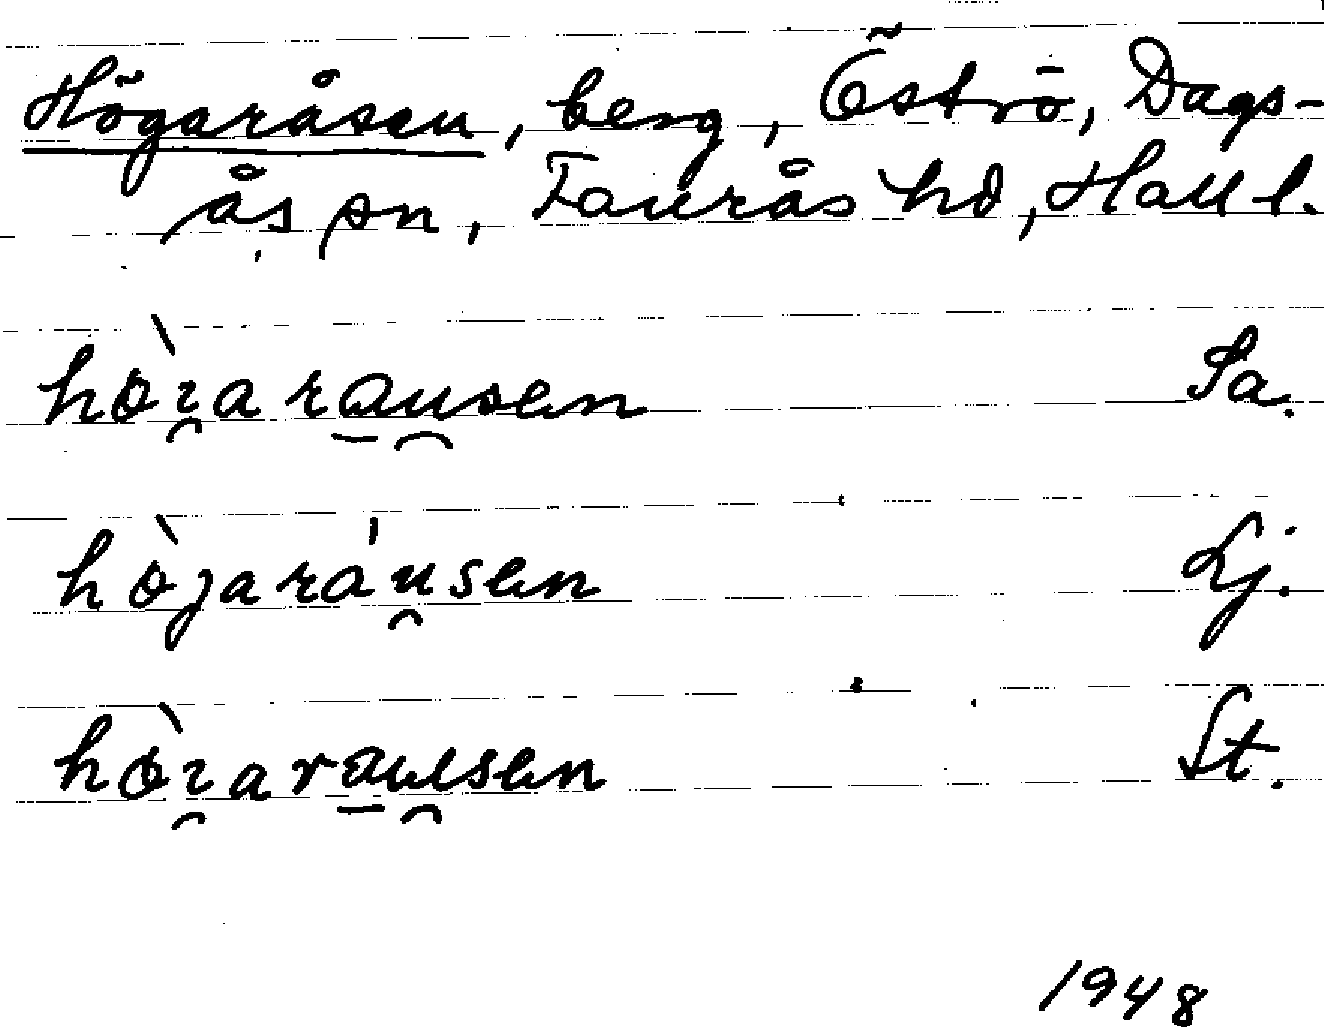 Högaråsen, berg, Öströ, Dags-
ås sn, Faurås hd, Hall.
hò̈ɿ̯arau̯sen Sa.
hòjaráu̯sen Lj.
hòɿ̯arau̯sen St.
1948